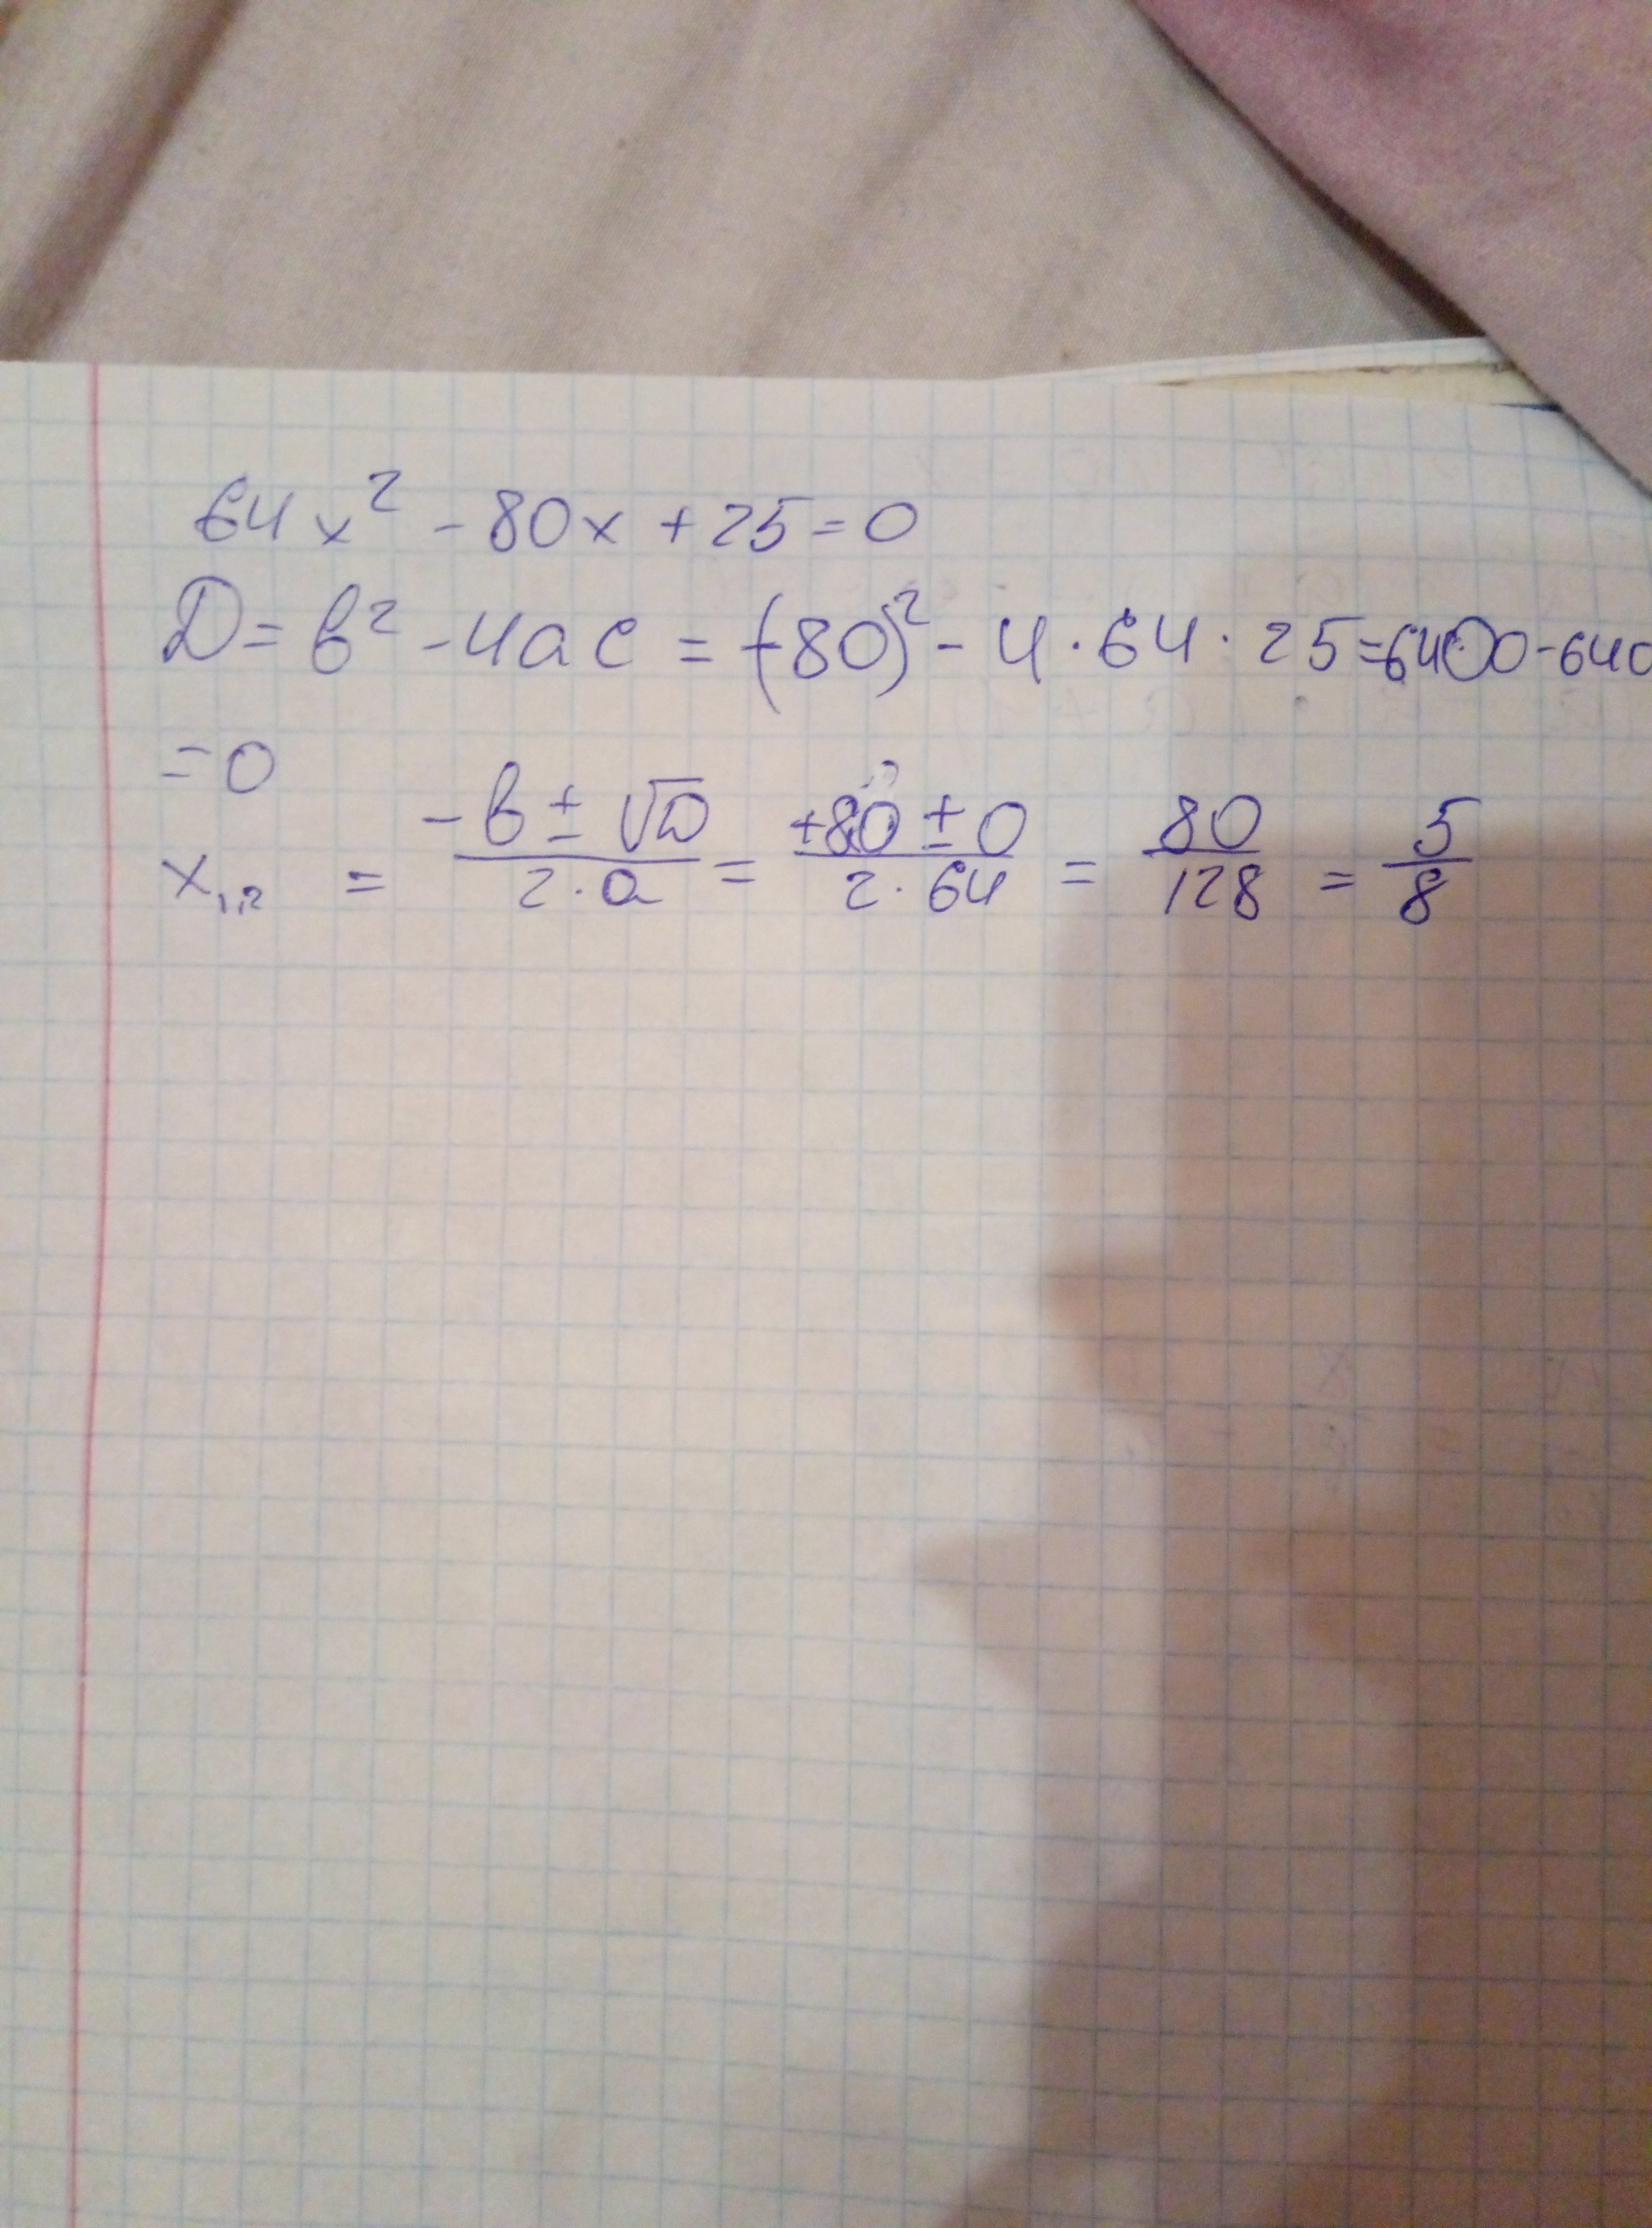 64x² - 80x + 25 = 0
D = b² - 4ac = (-80)² - 4 · 64 · 25 = 6400 - 640
= 0
x₁,₂ = (-b ± √D)/(2 · a) = (+80 ± 0)/(2 · 64) = 80/128 = 5/8